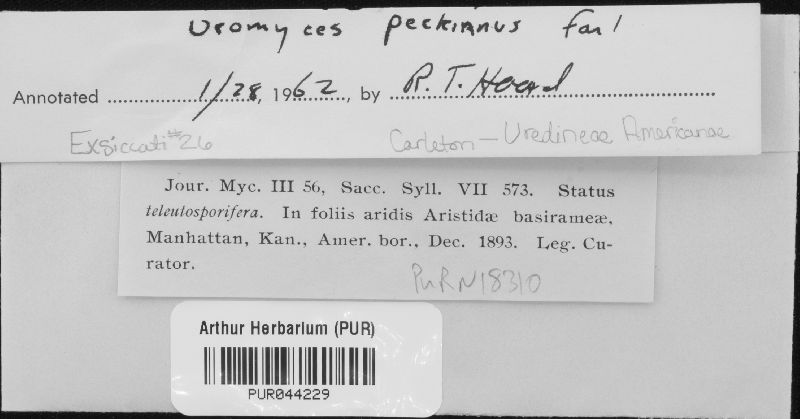 Uromyces peckianus Farl
Annotated 1/28, 1962, by R. T. Hoard
Exsiccati #26 Carleton - Uredineae Americanae
Jour. Myc. III 56, Sacc. Syll. VII 573. Status
teleutosporifera. In foliis aridis Aristidæ basirameæ,
Manhattan, Kan., Amer. bor., Dec. 1893. Leg. Cu-
rator.
PUR N18310
Arthur Herbarium (PUR)
PUR044229